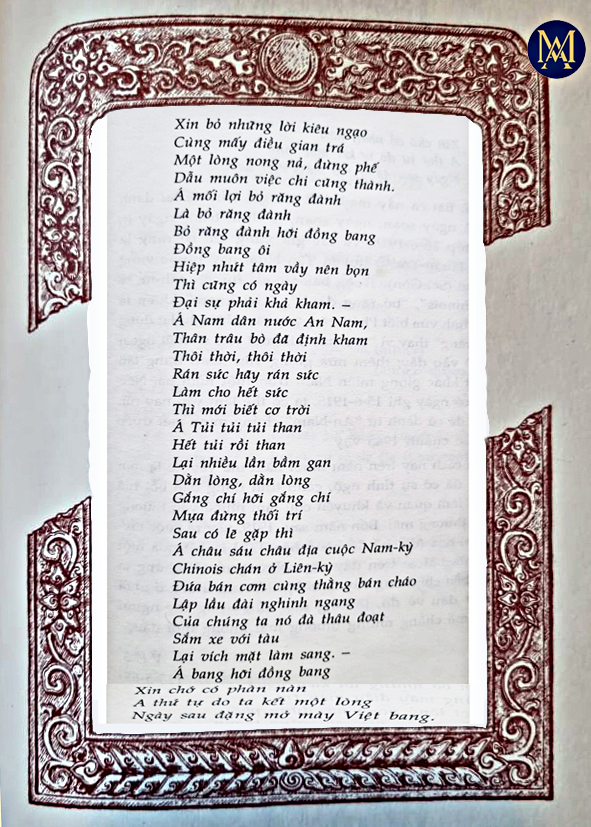 Xin bỏ những lời kiêu ngạo
Cùng mấy điều gian trá
Một lòng nong nả, đừng phế
Dẫu muôn việc chi cũng thành.
Á mối lợi bỏ răng đành
Là bỏ răng đành
Bỏ răng đành hỡi đồng bang
Đồng bang ôi
Hiệp nhứt tâm vầy nên bọn
Thì cũng có ngày
Đại sự phải khả kham. –
Á Nam dân nước An Nam,
Thân trâu bò đã định kham
Thôi thời, thôi thời
Rán sức hãy rán sức
Làm cho hết sức
Thì mới biết cơ trời
Á Tủi tủi tủi than
Hết tủi rồi than
Lại nhiều lần bầm gan
Dằn lòng, dằn lòng
Gắng chí hỡi gắng chí
Mựa đừng thối trí
Sau có lẽ gặp thì
Á châu sáu châu địa cuộc Nam-kỳ
Chinois chán ở Liên-kỳ
Đứa bán cơm cùng thằng bán cháo
Lập lầu đài nghinh ngang
Của chúng ta nó đà thâu đoạt
Sắm xe với tàu
Lại vích mặt làm sang. –
Á bang hỡi đồng bang
Xin chớ có phàn nàn
A thứ tự do ta kết một lòng
Ngày sau đặng mở mày Việt bang.